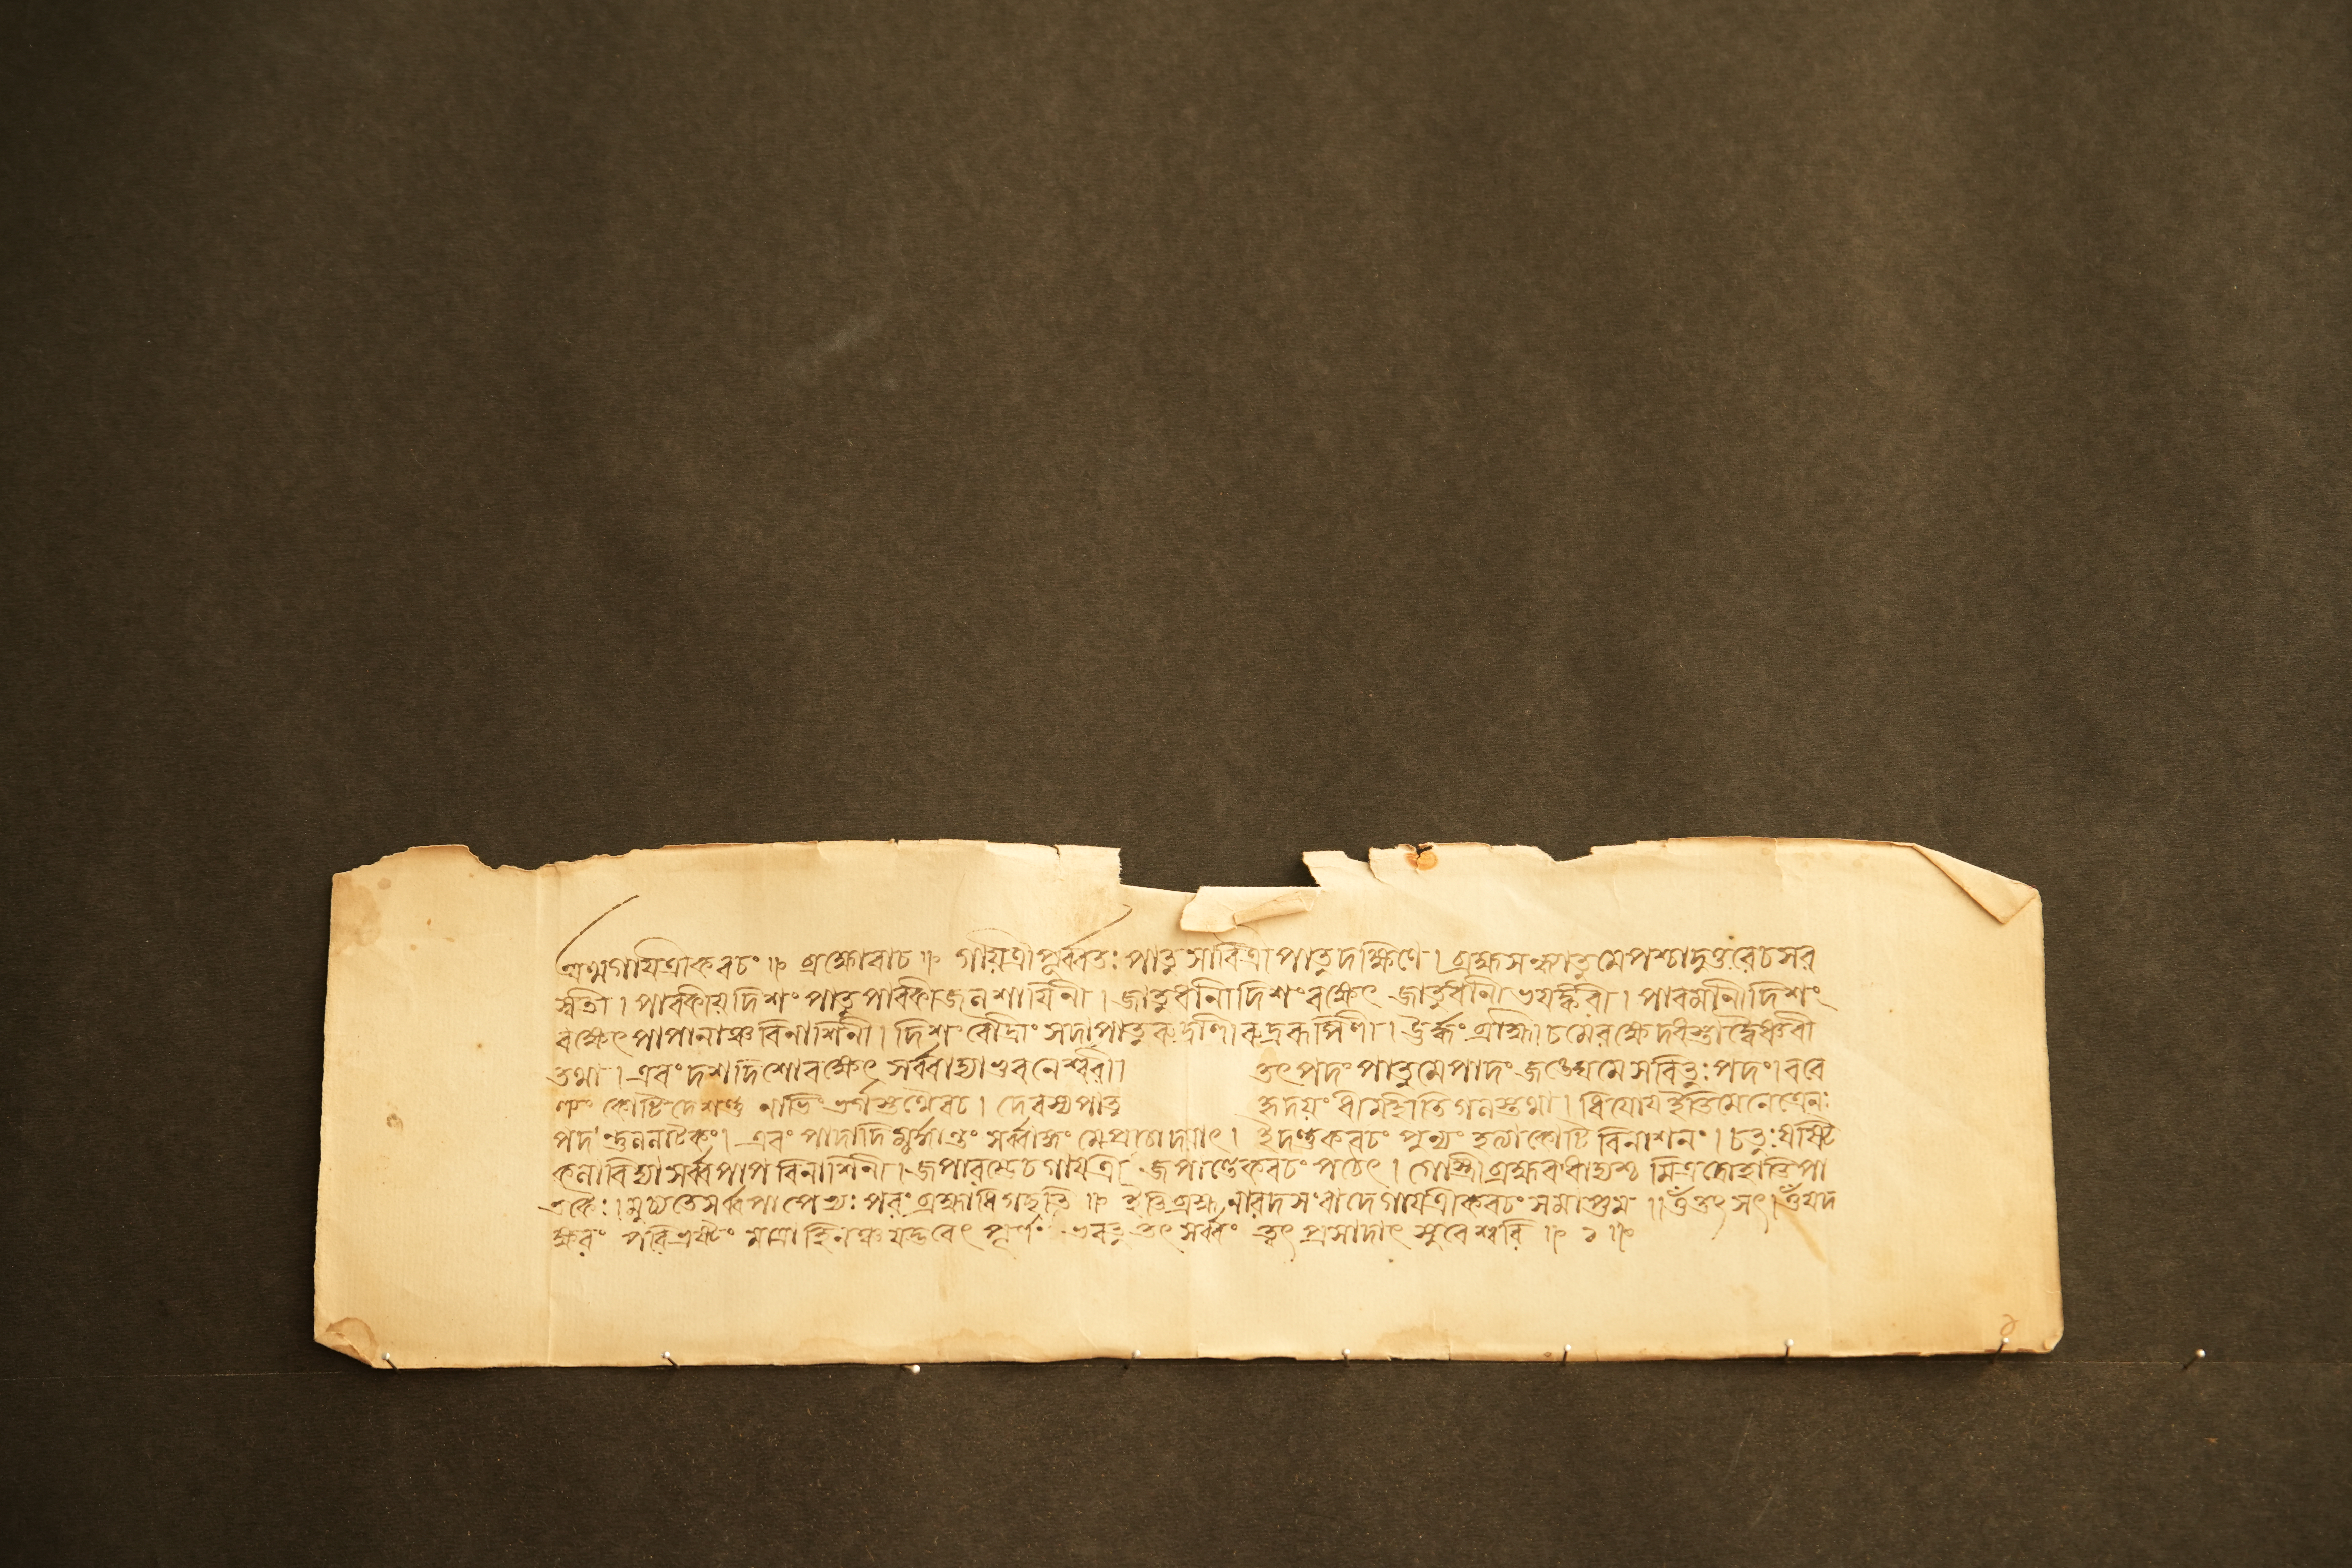 অথগায়ত্রীকবচং ॥ ব্রহ্মোবাচ ॥ গায়ত্রীপূর্ব্বতঃ পাতু সাবিত্রী পাতু দক্ষিণে । ব্রহ্মসন্ধ্যাতুমেপশ্চাদুত্তরেচসর
স্বতী । পাবকীয়দিশং পাতু পাবকীজলশায়িনী । জাতুধানীদিশংরক্ষেৎ জাতুধানীভয়ঙ্করী । পাবমানীদিশং
রক্ষেৎপাপানাঞ্চবিনাশিনী । দিশংরৌদ্রীং সদাপাতু রুদ্রাণীরুদ্ররূপিণী । ঊর্দ্ধং ব্রাহ্মীচমেরক্ষেদধস্তাদ্বৈষ্ণবী
তথা । এবং দশদিশোরক্ষেৎ সর্ব্ববাহ্যাভুবনেশ্বরী । তৎপদং পাতুমেপাদং জঙ্ঘেমেসবিতুঃপদং । বরে
ণ্যং কোটিদেশন্তু নাভিং ভর্গস্তথৈবচ । দেবস্যপাতু হৃদয়ং ধীমহীতিগলস্তথা । ধিয়োয়ইতিমেনেত্রেনঃ
পদন্তুললাটকং । এবং পাদাদিমুর্দ্ধান্তং সর্ব্বাঙ্গং মেপ্রচোদয়াৎ । ইদন্তুকবচং পুন্যং হত্যাকোটিবিনাশনং । চতুঃষষ্টি
কলাবিদ্যাসর্ব্বপাপবিনাশিনী । জপারম্ভেচগায়ত্রী জপান্তেকবচং পঠেৎ । গোস্ত্রীব্রহ্মবধাদ্যশ্চ মিত্রদ্রোহাতিপা
তকৈঃ । মুচ্যতেসর্ব্বপাপেভ্যঃ পরংব্রহ্মাধিগছতি ॥ ইতিব্রহ্মনারদসংবাদেগায়ত্রীকবচং সমাপ্তম ॥ ওঁতৎসৎ । ওঁযদ
ক্ষরং পরিভ্রষ্টং মাত্রাহিনঞ্চযদ্ভবেৎ পূর্ণং ভবতু তৎসর্ব্বং ত্বৎপ্রসাদাৎ সুরেশ্বরি ॥ ১ ॥